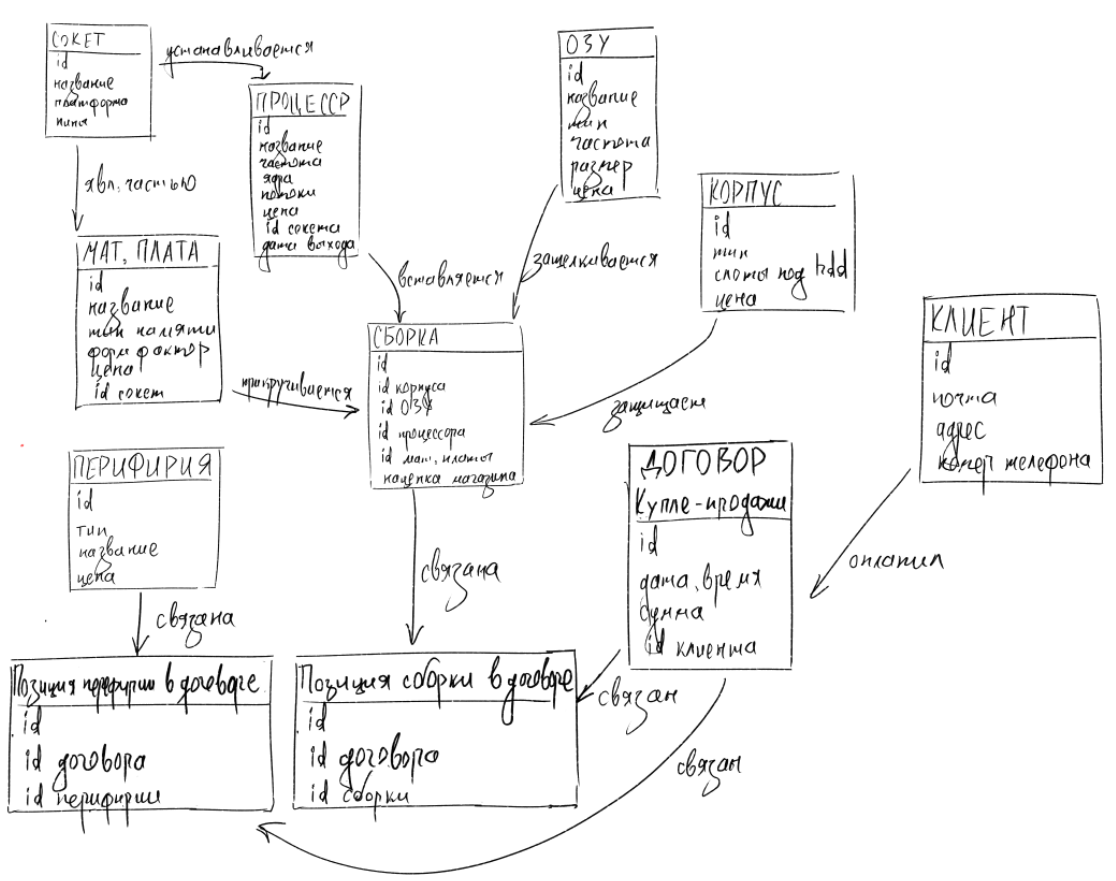 СОКЕТ
id
название
платформа
пины
устанавливается
ПРОЦЕССР
id
название
частота
ядра
потоки
цена
id сокета
дата выхода
ОЗУ
id
название
тип
частота
размер
цена
КОРПУС
id
тип
слоты под hdd
цена
явл. частью
МАТ, ПЛАТА
id
название
тип памяти
форм фактор
цена
id сокет
вставляется
защелкивается
прикручивается
СБОРКА
id
id корпуса
id ОЗУ
id процессора
id мат, платы
наценка магазина
защищает
КЛИЕНТ
id
почта
адрес
номер телефона
ПЕРИФИРИЯ
id
тип
название
цена
ДОГОВОР
Купле-продажи
id
дата, время
сумма
id клиента
оплатил
связана
связана
Позиция перифирии в договоре
id
id договора
id перифирии
Позиция сборки в договоре
id
id договора
id сборки
связан
связан